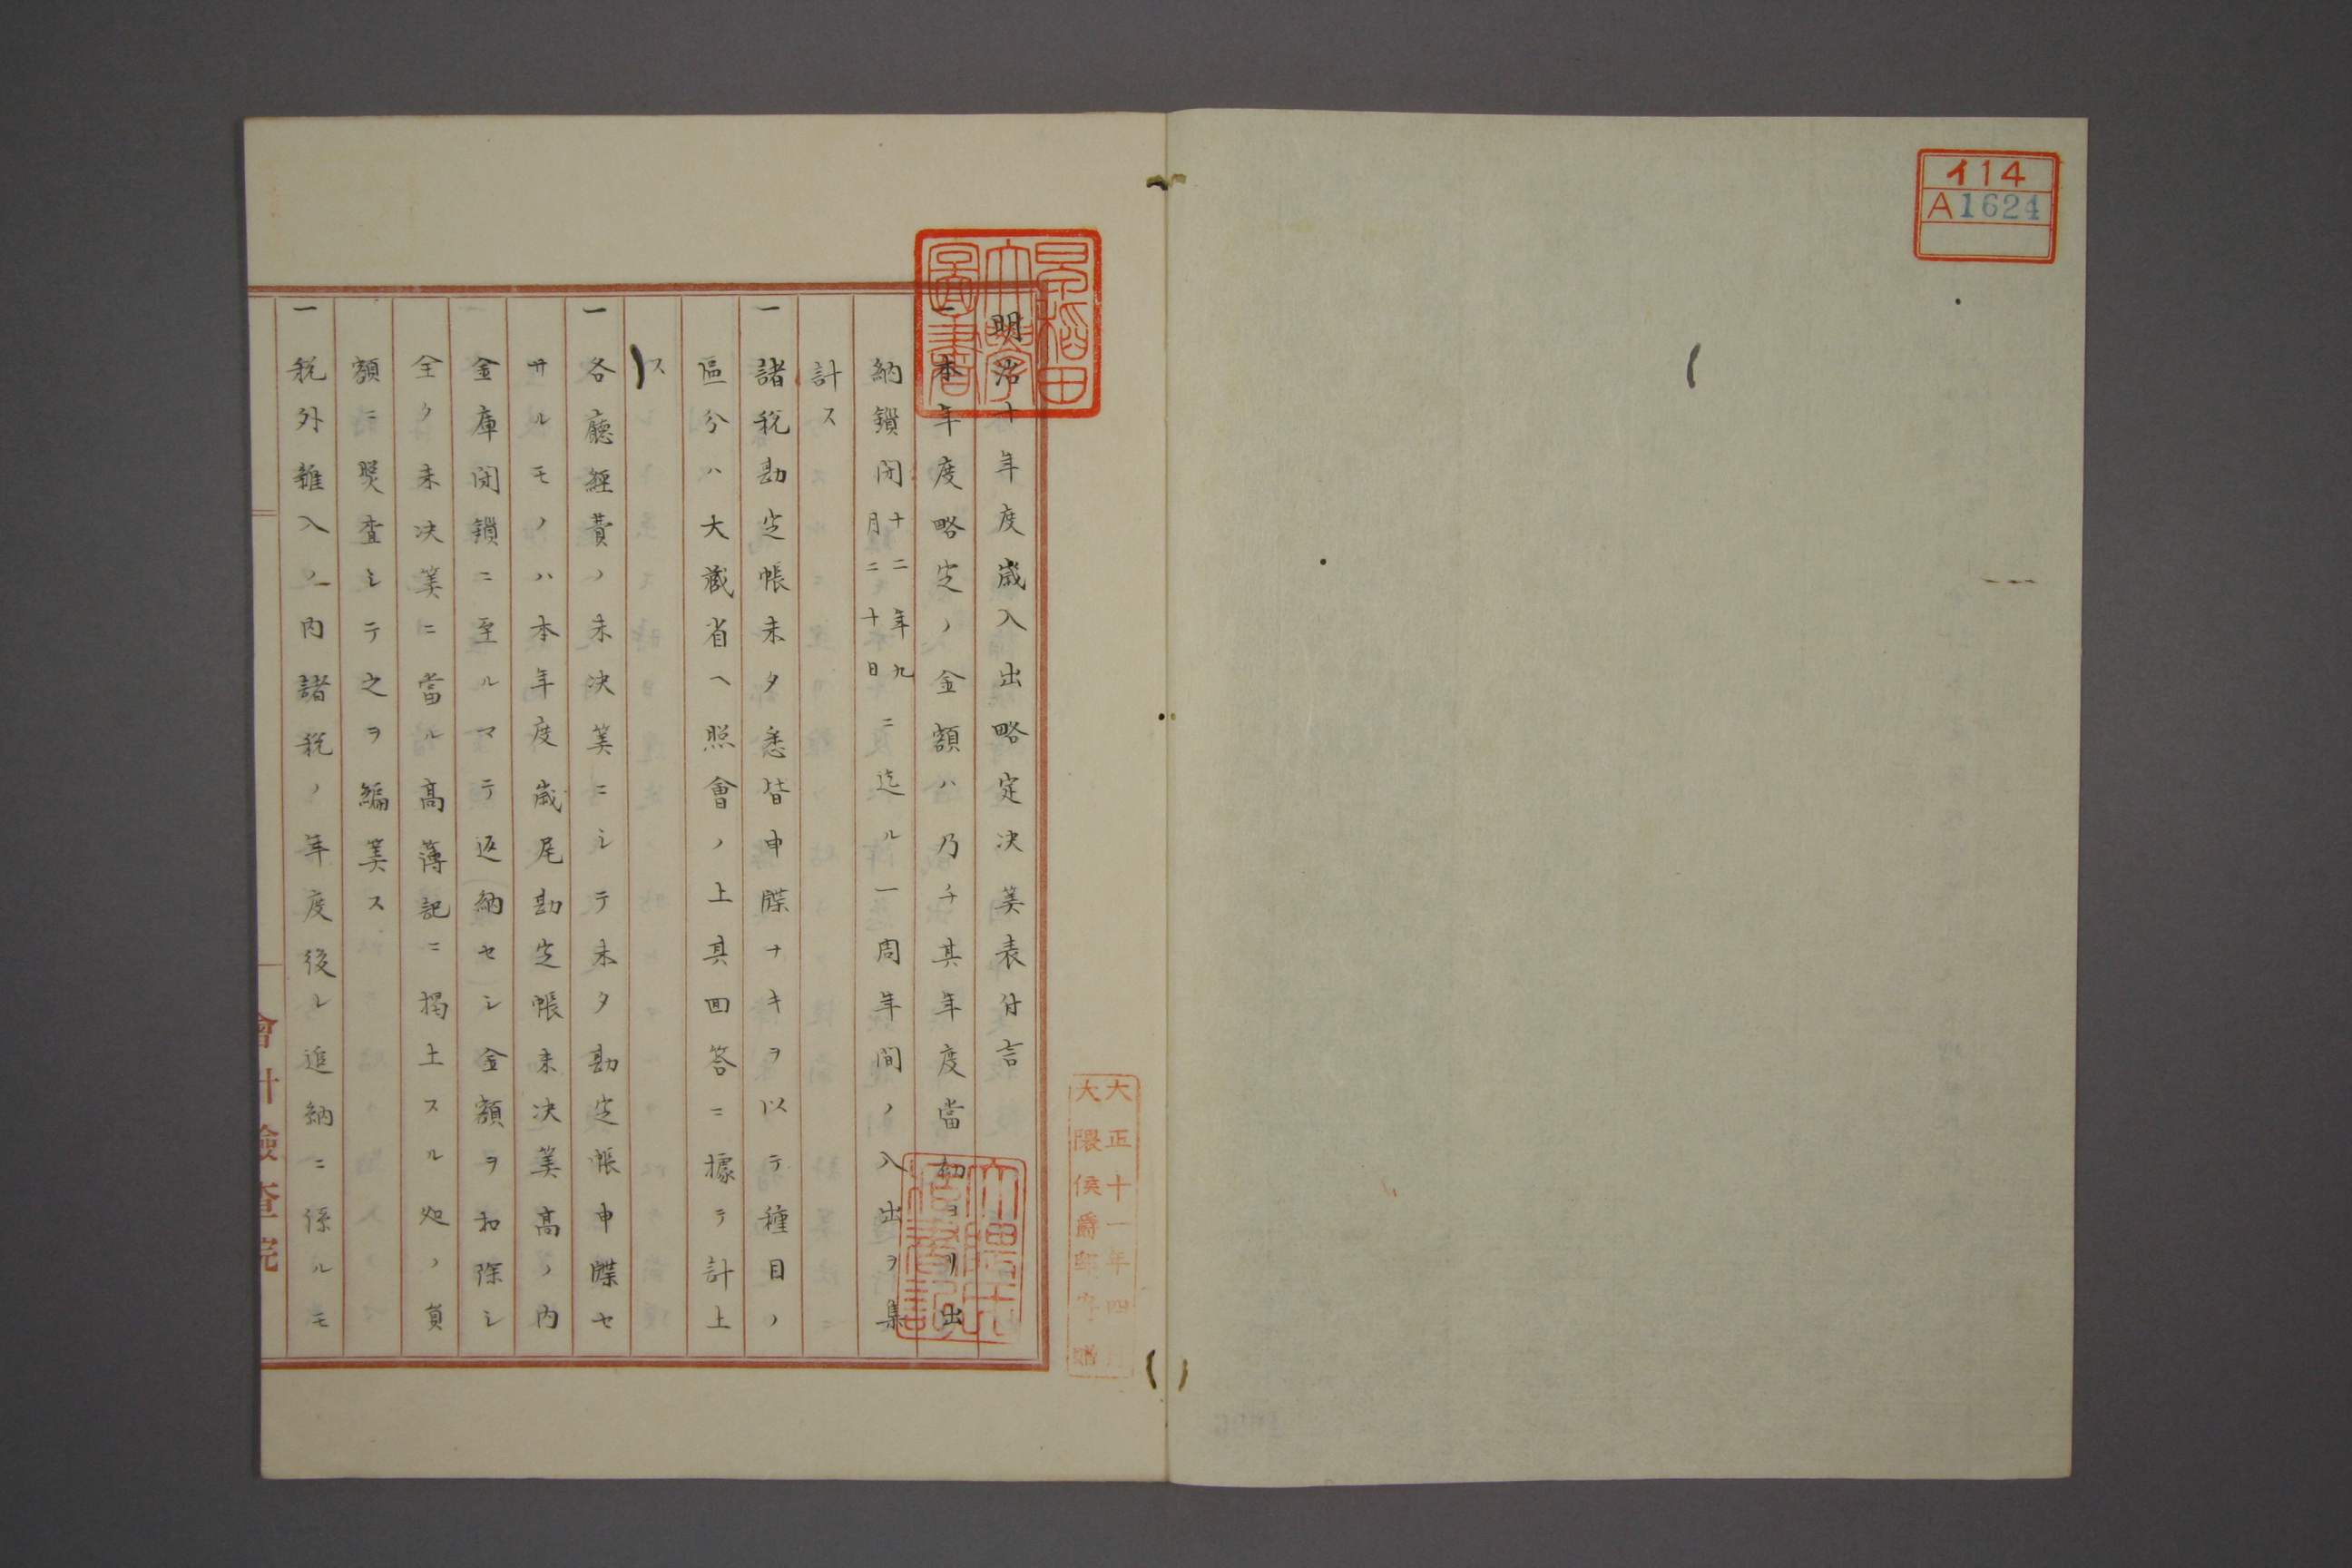 イ14
A1624
早稲田
大學
圖書
大正十一年四
大隈侯爵邸寄贈
明治十年度歳入出略定決筭表付言
一本年度略定ノ金額ハ乃チ其年度當初ヨリ出
納鎖閉十二年九月二十日ニ迄ル一周年間ノ入出ヲ集
計ス
一諸税勘定帳未タ悉皆申牒ナキヲ以テ種目ノ
區分ハ大藏省ヘ照會ノ上其回答ニ據テ計上
ス
一各廳經費ノ未決筭ニシテ未タ勘定帳申牒セ
サルモノハ本年度歳尾勘定帳未決筭高ノ内
金庫閉鎖ニ至ルマテ返納セシ金額ヲ扣除シ
全ク未決筭ニ當ル高薄記ニ掲土スル処ノ員
額ニ照査シテ之ヲ編筭ス
一税外雜入ノ内諸税ノ年度後レ追納ニ係ルモ
會計檢査院